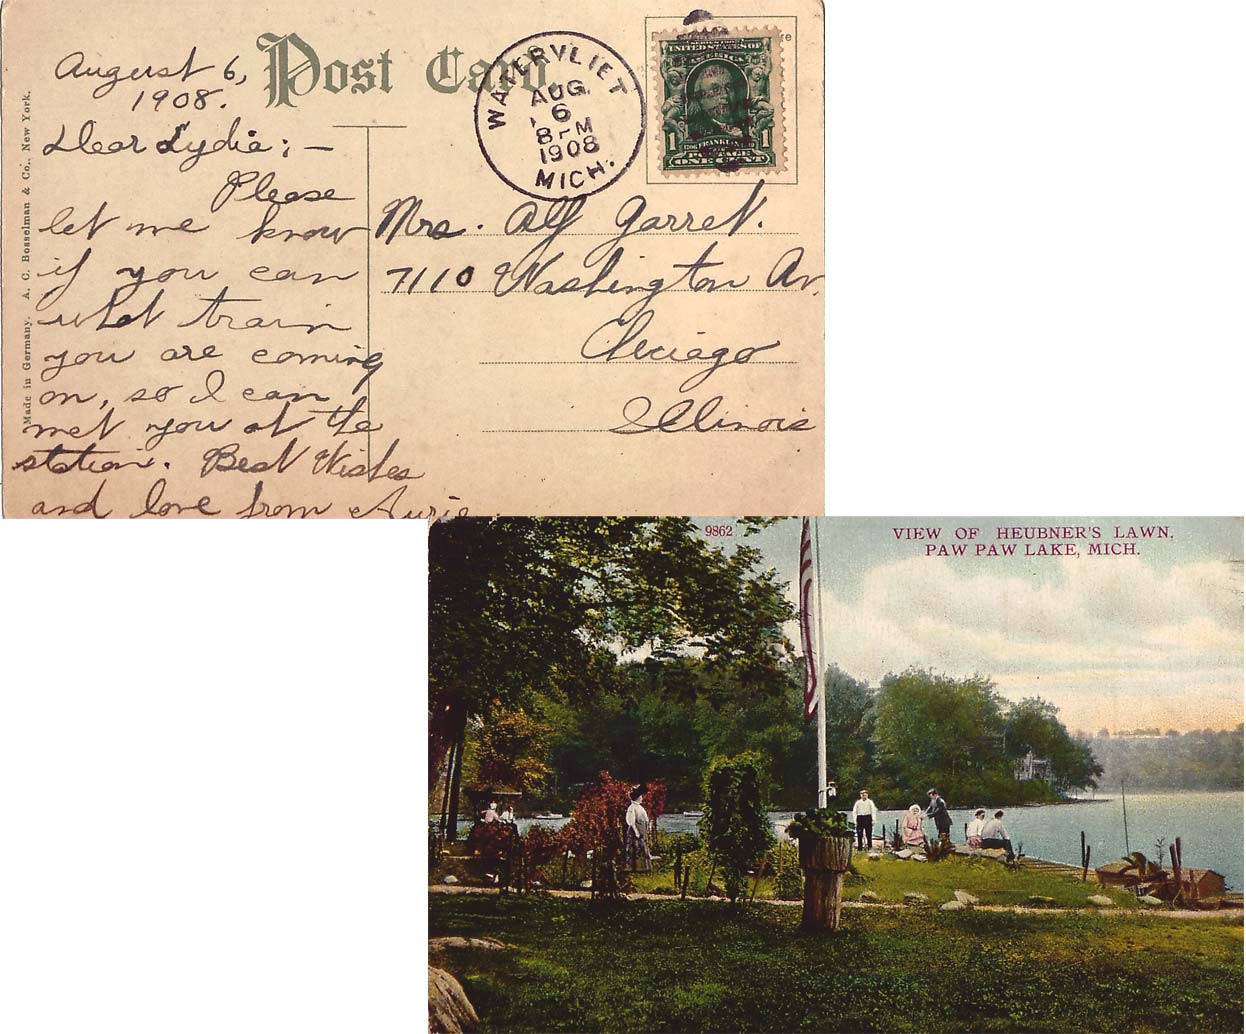 Post Card
Made in Germany. A. C. Bosselman & Co., New York.
Augerst 6,
1908.
Dear Lydia; —
Please
let me know
if you can
what train
you are coming
on, so I can
met you at the
station. Best Wishes
and love from
WATERVLIET
AUG
6
8-M
1908
MICH.
SERIES 1902
UNITED STATES OF
AMERICA
1 FRANKLIN 1
POSTAGE
ONE CENT
re
Mrs. Alf Garret.
7110 Washington Av.
Chciago
Illinois
9862
VIEW OF HEUBNER'S LAWN,
PAW PAW LAKE, MICH.